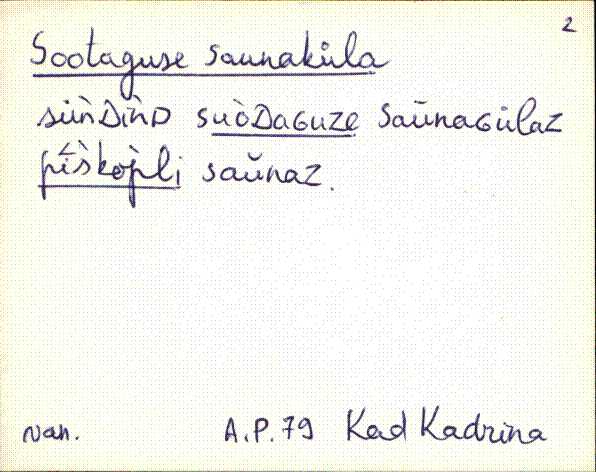 2
Sootaguse saunaküla
sǜǹDìǹD sùòDaGuZe saŭnaGülaZ
píškop̀li saŭnaZ.
Nah. A.P.79 Kad Kadrina